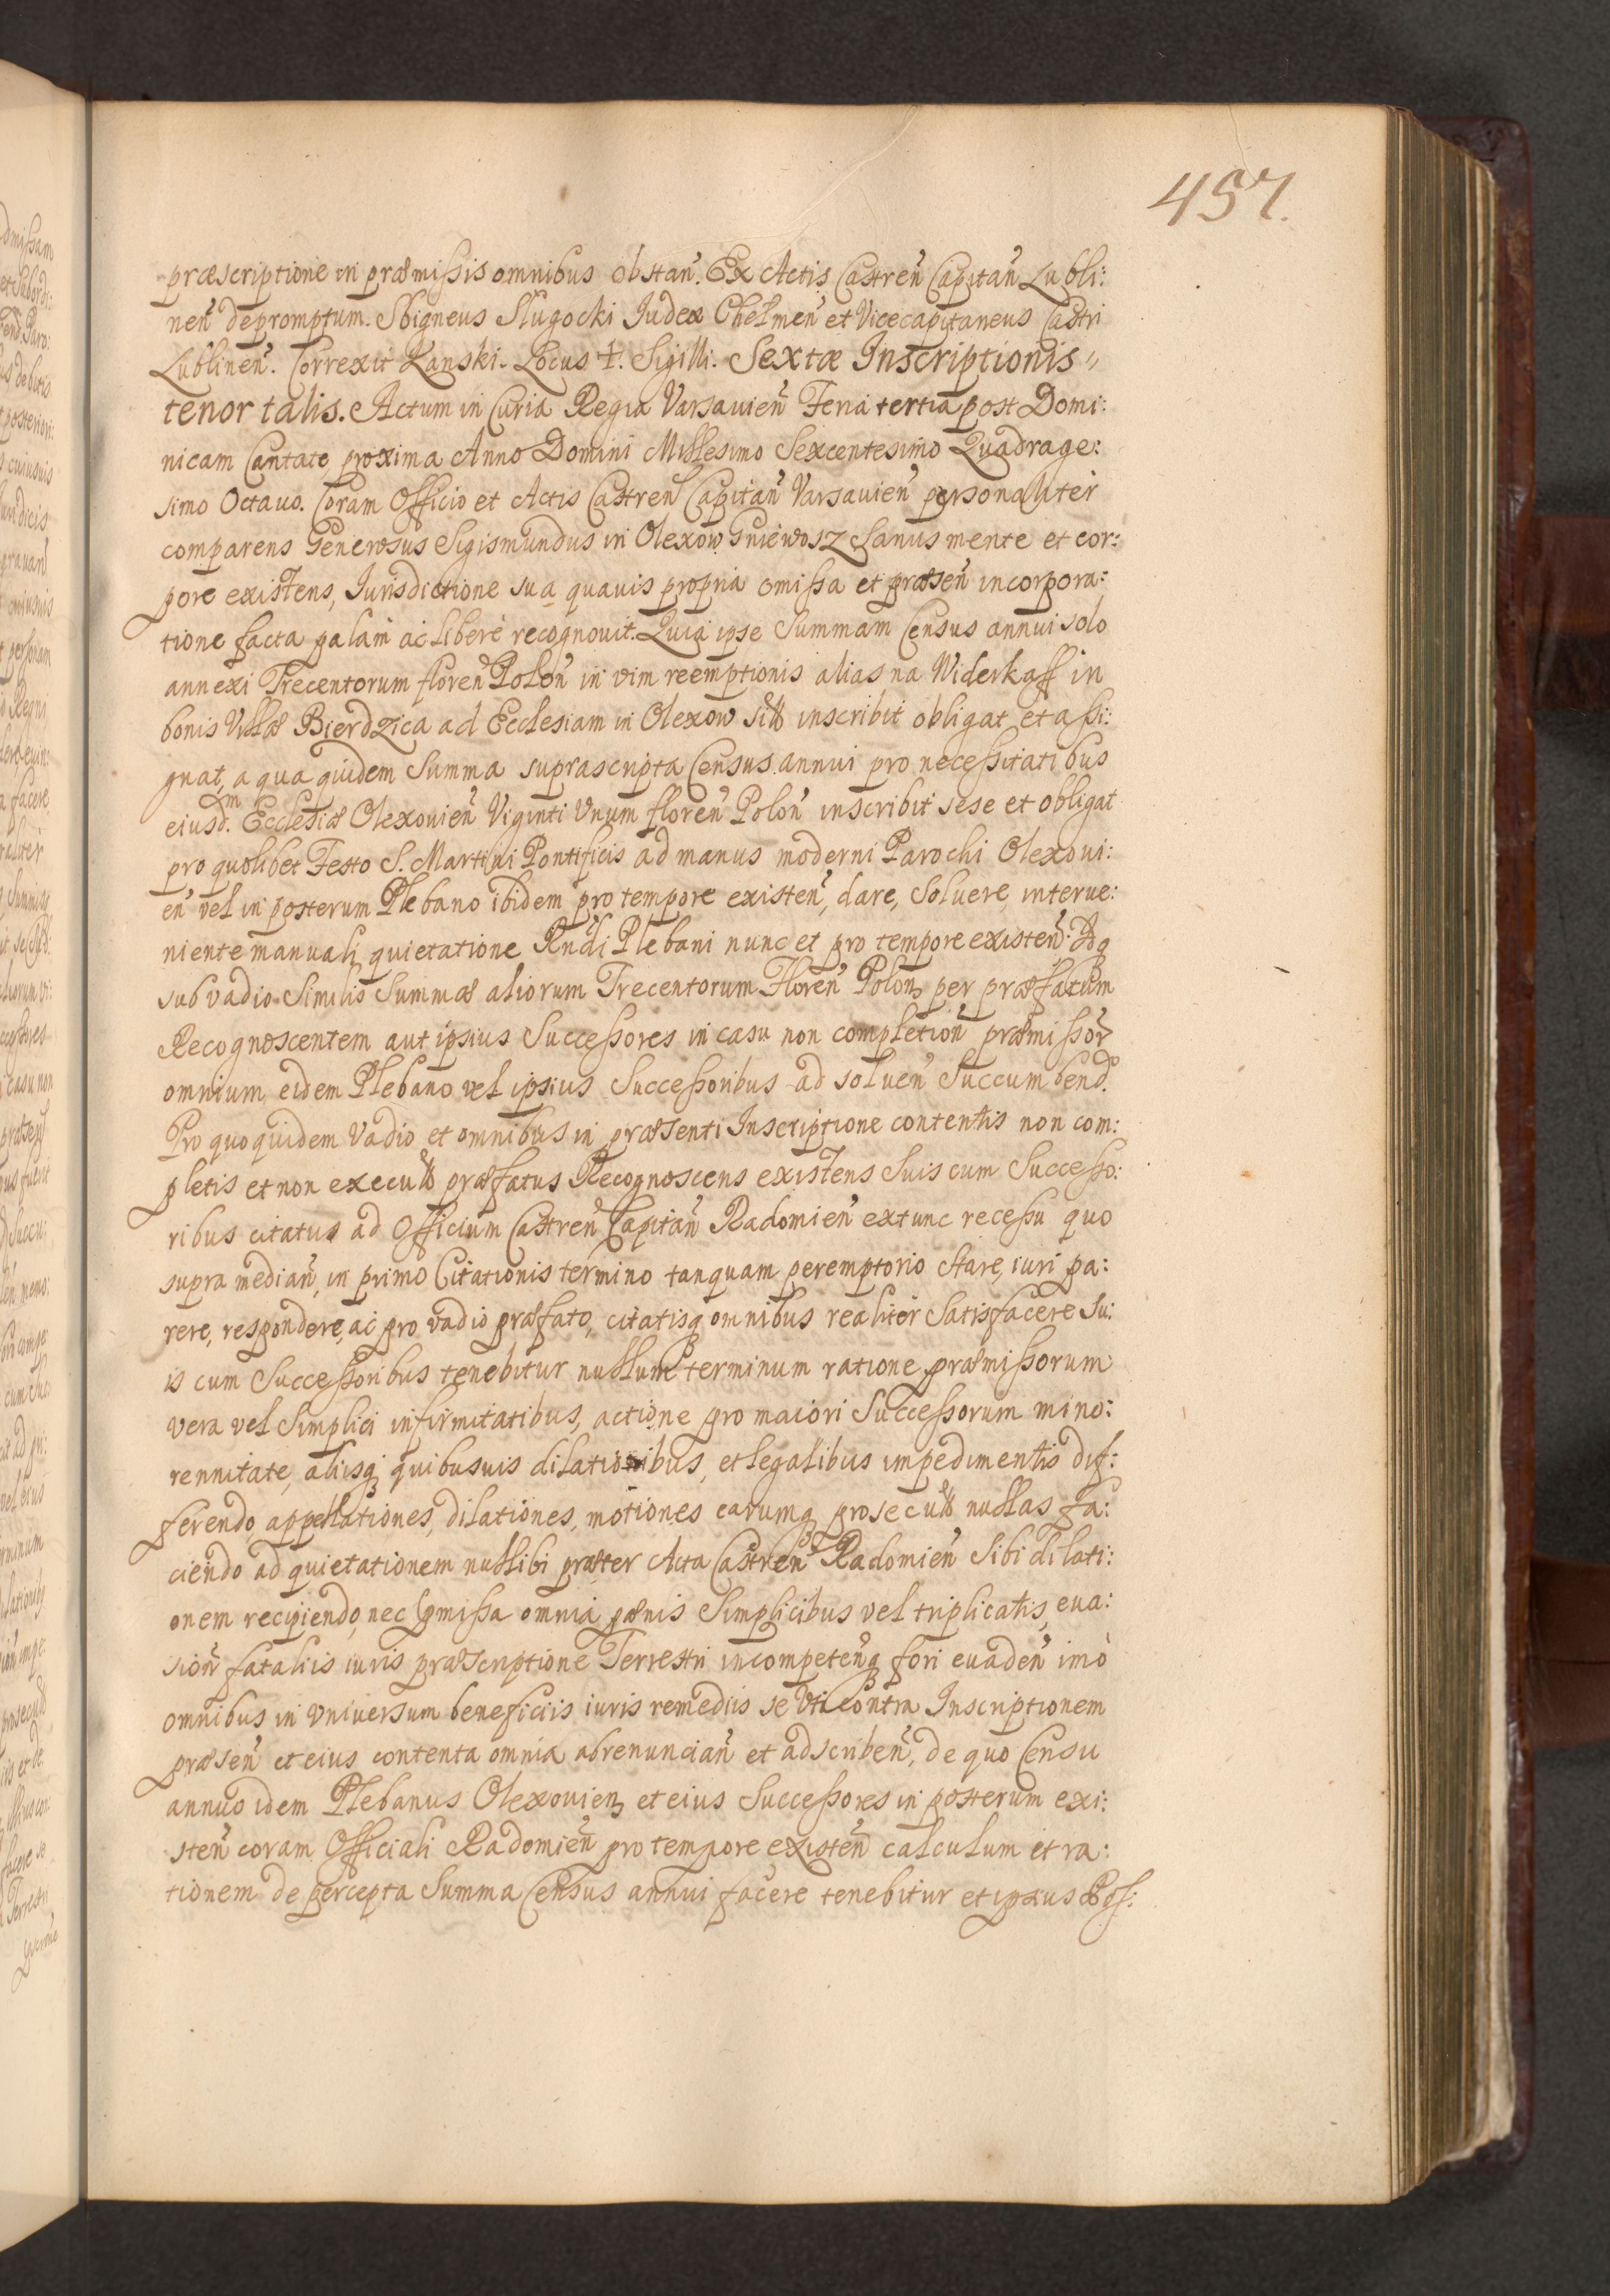 457.
præscriptione in præmissis omnibus obstan̄. Ex Actis Castren̄ Capitan̄ Lubli:
nen̄ depromptum. Sbigneus Slugocki Iudex Chelmen̄ et Vicecapitaneus Castri
Lublinen̄. Correxit Łanski. Locus ☩. Sigilli. Sextæ Inscriptionis
tenor talis. Actum in Curia Regia Varsauien̄ Feria tertia post Domi:
nicam Cantate proxima Anno Domini Millesimo Sexcentesimo Quadrage:
simo Octauo. Coram Officio et Actis Castren̄ Capitan̄ Varsauien̄ personaliter
comparens Generosus Sigismundus in Olexow Gniewosz sanus mente et cor:
pore existens, Iurisdictione sua quauis propria omissa et præsen̄ incorpora:
tione facta palam ac liberè recognouit. Quia ipse Summam Census annui solo
annexi Trecentorum floren̄ Polon̄ in vim reemptionis alias na Widerkaff in
bonis Villæ Bierdzica ad Ecclesiam in Olexow inscribit obligat et assi:
gnat, a qua quidem Summa suprascripta Census annui pro necessitatibus
eiusdm. Ecclesiæ Olexouien̄ Viginti Vnum floren̄ Polon̄ inscribit sese et obligat
pro quolibet Festo S. Martini Pontificis ad manus moderni Parochi Olexoui:
en̄ vel in posterum Plebano ibidem pro tempore existen̄, dare, soluere, interue:
niente manuali quietatione Rndi Plebani nunc et pro tempore existen̄. Idq
sub vadio Similis Summæ aliorum Trecentorum Floren̄ Polon̄ per præfatum
Recognoscentem aut ipsius Successores in casu non completion̄ præmissor̄
omnium eidem Plebano vel ipsius Successoribus ad soluen̄ Succumbend.
Pro quo quidem Vadio et omnibus in præsenti Inscriptione contentis non com:
pletis et non executis præfatus Recognoscens existens Suis cum Successo:
ribus citatus ad Officium Castren̄ Capitan̄ Radomien̄ extunc recessu quo
supra median̄, in primo Citationis termino tanquam peremptorio stare, iuri pa:
rere, respondere, ac pro vadio præfato, citatisq omnibus realiter Satisfacere su:
is cum Successoribus tenebitur nullum terminum ratione præmissorum
vera vel simplici infirmitatibus, actione pro maiori Successorum mino:
rennitate, aliisq quibusuis dilationibus, et legalibus impedimentis dif:
ferendo, appellationes, dilationes, motiones earumq prosecutis nullas fa:
ciendo ad quietationem nullibi præter Acta Castren̄ Radomien̄ Sibi dilati:
onem recipiendo, nec pmissa omnia pænis Simplicibus vel triplicatis, eua:
sion̄ fataliis iuris præscriptione Terrestri incompeten̄q fori euaden̄ imò
omnibus in Vniuersum beneficiis iuris remediis se Vti Contra Inscriptionem
præsen̄ et eius contenta omnia abrenuncian̄ et adscriben̄, de quo Censu
annuo idem Plebanus Olexouien̄ et eius Successores in posterum exi:
sten̄ coram Officiali Radomien̄ pro tempore existen̄ calculum et ra:
tionem de percepta Summa Census annui facere tenebitur et ipsius Pos: